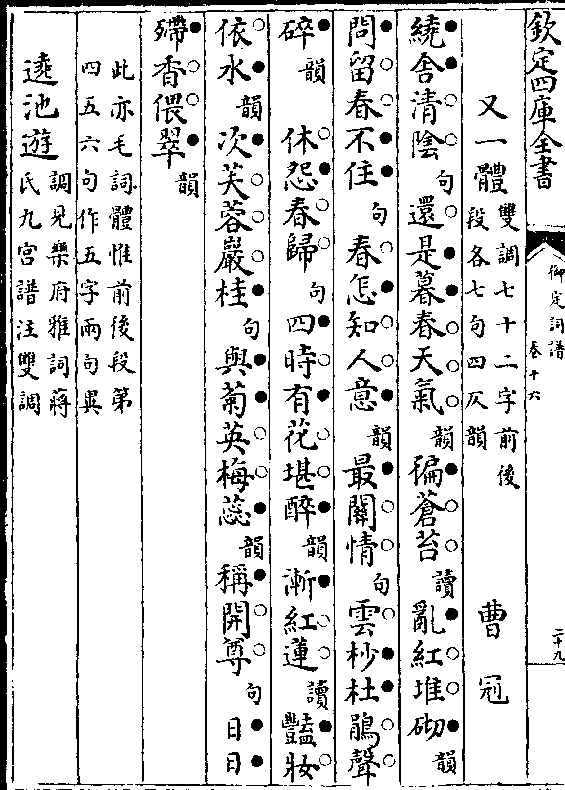 欽定四庫全書
御定詞譜 卷十六
二十九
又一體 雙調七十二字前後段各七句四仄韻 曹冠
繞舍清陰句還是暮春天氣韻徧蒼苔讀亂紅堆砌韻
問留春不住句春怎知人意韻最關情句雲杪杜鵑聲
碎韻 休怨春歸句四時有花堪醉韻漸紅蓮讀豔妝
依水韻次芙蓉巖桂句與菊英梅蕊韻稱開尊句日日
殢香偎翠韻
此亦毛詞體惟前後段第四五六句作五字兩句異
遶池遊 調見樂府雅詞蔣氏九宮譜注雙調